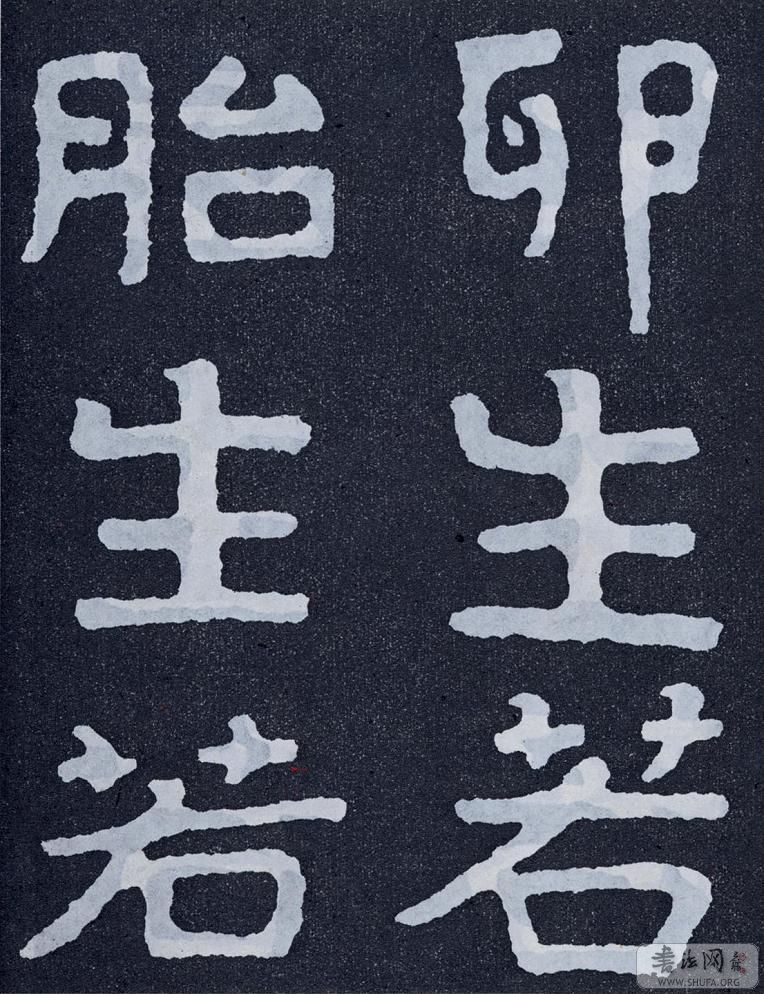 卵生若
胎生若
書法网
WWW.SHUFA.ORG